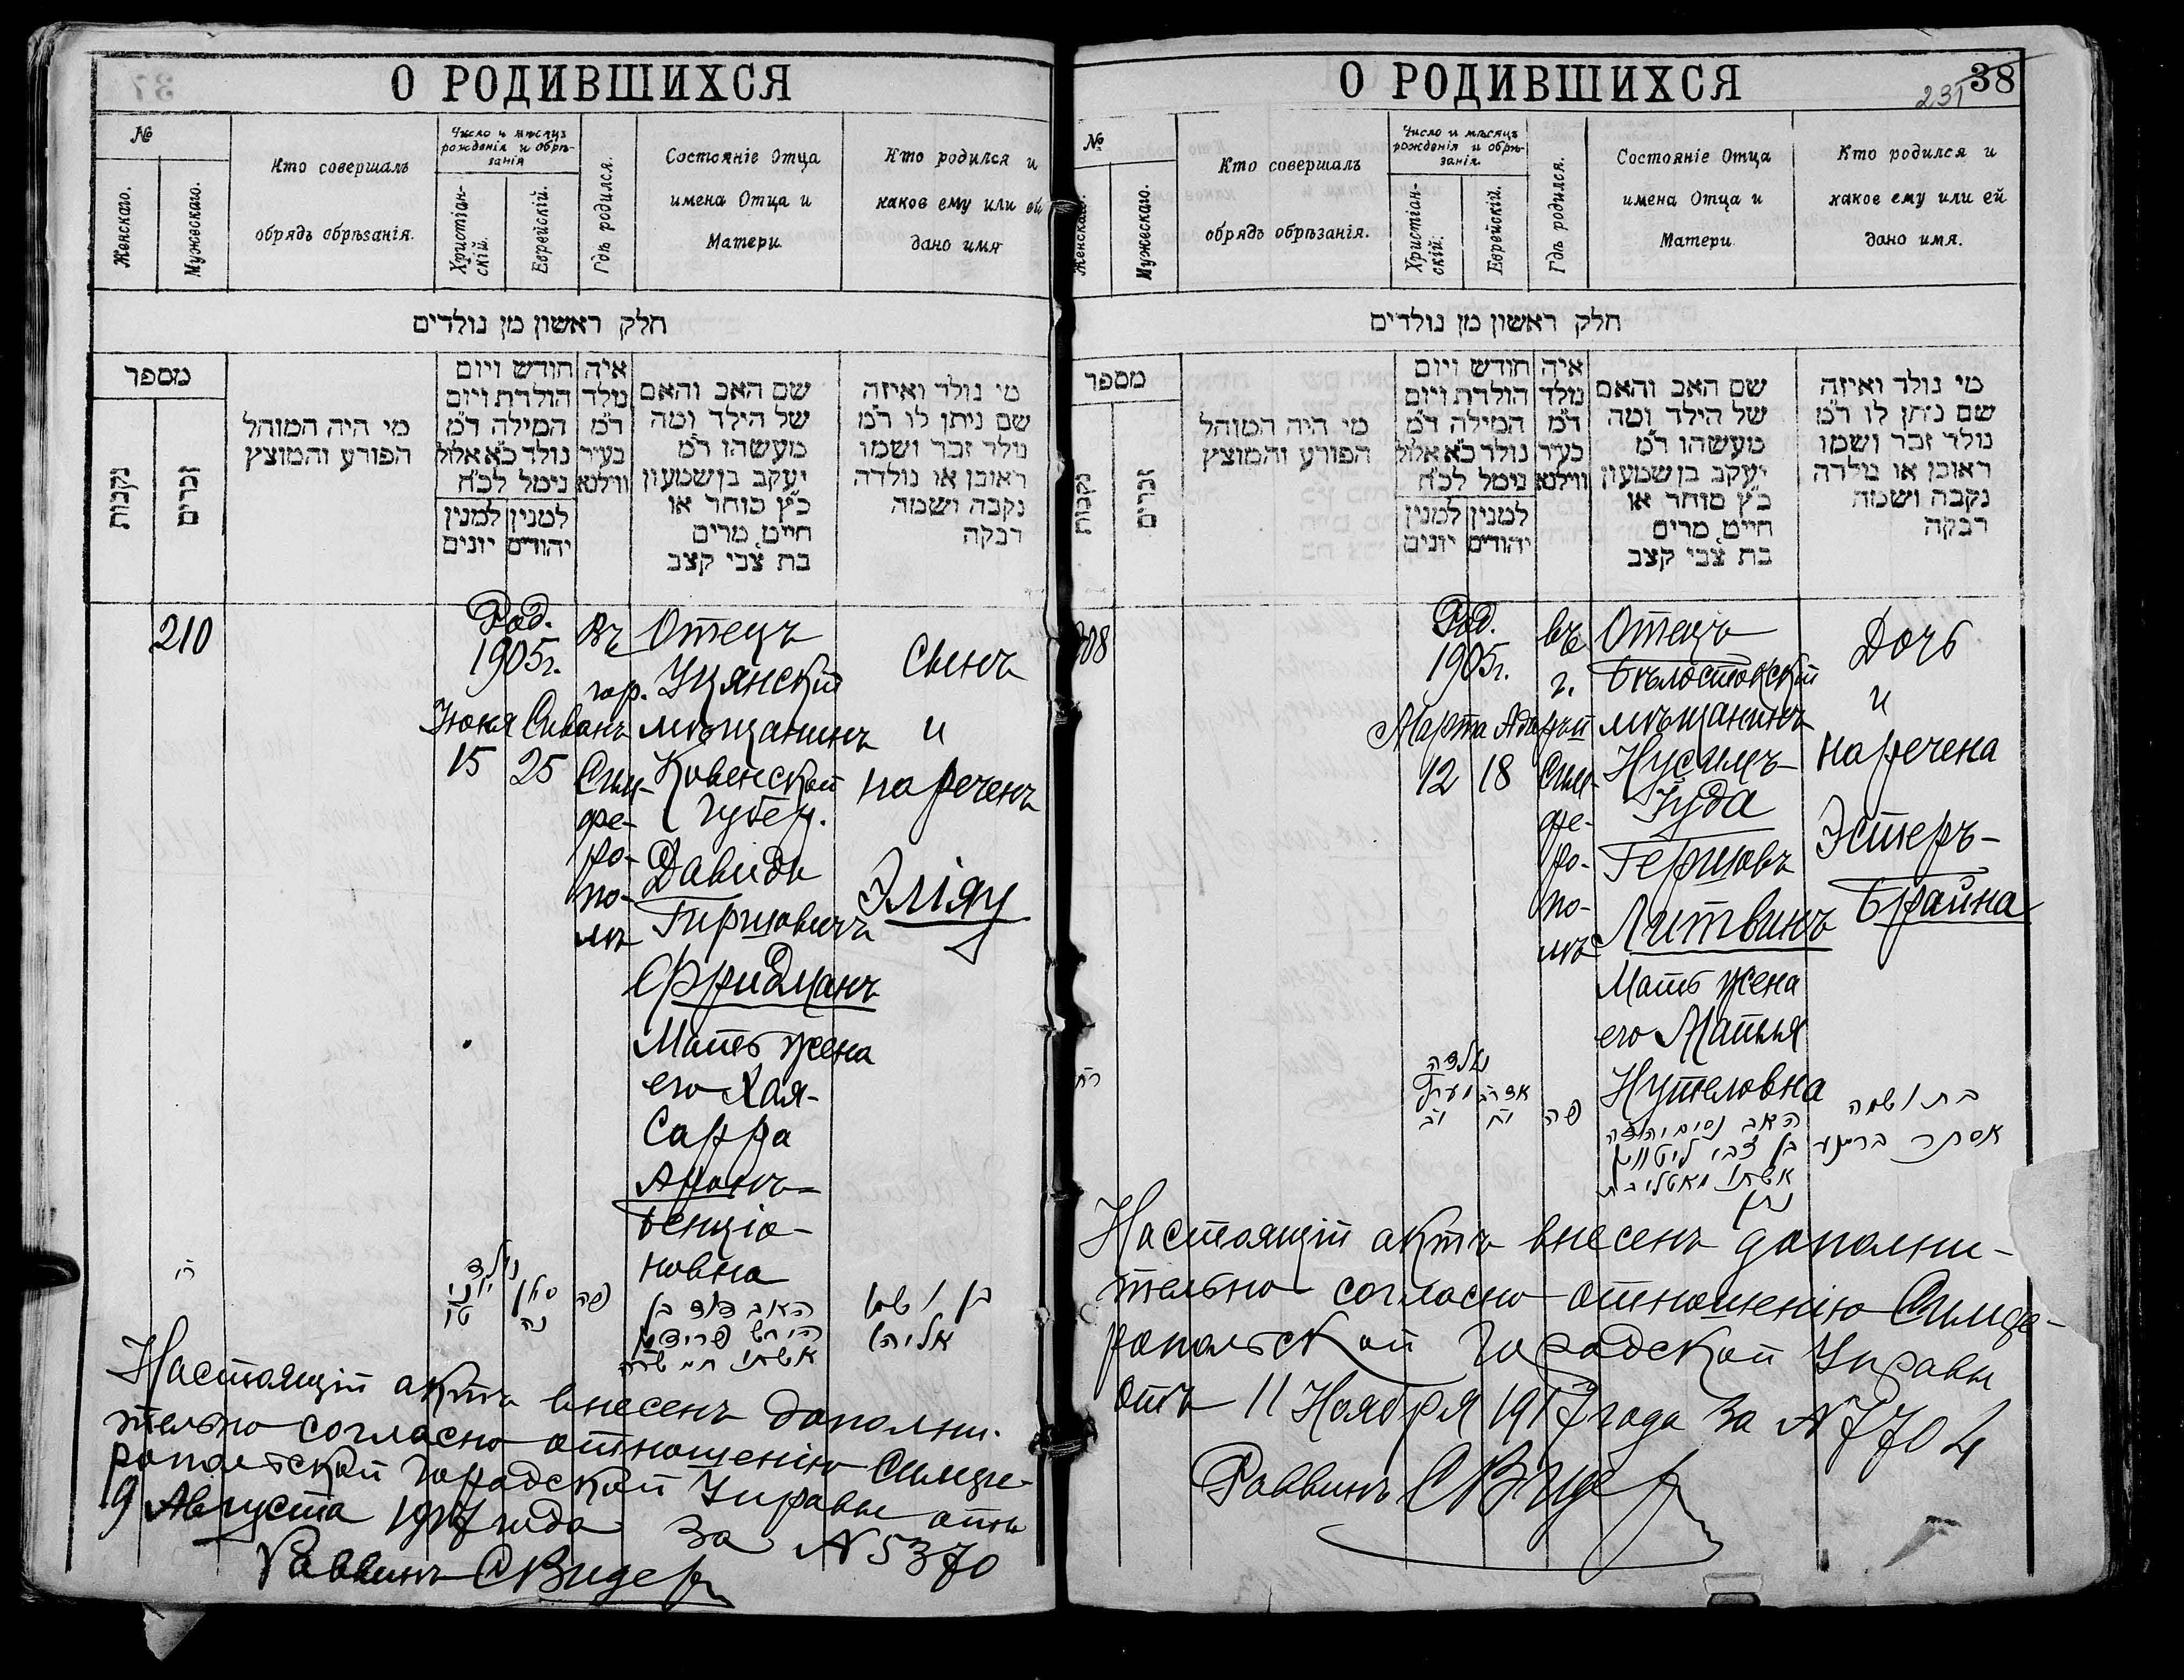 О РОДИВШИХСЯ
№
Женскаго.
Мужескаго.
Кто совершалъ
обрядъ обрѣзанія.
Число и мѣсяцъ
рожденія и обрѣ-
занія
Христіан-
скій.
Еврейскій.
Гдѣ родился.
Состояніе Отца
имена Отца и
Матери.
Кто родился и
какое ему или ей
дано имя
חלק ראשון מן נולדים
מספר
נקבות
זכרים
מי היה המוהל
הפורע והמוצץ
חודש ויום
הולדת ויום
המילה ד״מ
נולד כ״א אלול
נימל לכ״ח
למנין למנין
יהודים יונים
איה
נולד
ד״מ
בעיר
ווילנא
שם האב והאם
של הילד ומה
מעשהו ד״מ
יעקב בן שמעון
כ״ץ סוחר או
חייט, מרים
בת צבי קצב
מי נולד ואיזה
שם ניתן לו ד״מ
נולד זכר ושמו
ראובן או נולדה
נקבה ושמה
רבקה
210
Род.
1905г.
Іюня Сиванъ
15 25
Въ
гор.
Сим-
фе-
ро-
по-
лѣ
Отецъ
Уцянскій
мѣщанинъ
Ковенской
Губер.
Давидъ
Гиршовичъ
Фридманъ
Мать жена
его Хая-
Сарра
Аронъ-
Бенціо-
новна
Сынъ
и
нареченъ
Эліяу
נולד
יוני
סיון
טו
כה
פה
האב דוד בן
הירש פרידמן
אשתו חי׳ שרה
בן ושמו
אליהו
Настоящій актъ внесенъ дополни-
тельно согласно отношенію Симфе-
ропольской Городской Управы отъ
19 Августа 1917 года за N 5370
Раввинъ СВидер
О РОДИВШИХСЯ
231
38
№
Женскаго.
Мужескаго.
Кто совершалъ
обрядъ обрѣзанія.
Число и мѣсяцъ
рожденія и обрѣ-
занія.
Христіан-
скій.
Еврейскій.
Гдѣ родился.
Состояніе Отца
имена Отца и
Матери
Кто родился и
какое ему или ей
дано имя.
חלק ראשון מן נולדים
מספר
נקבות
זכרים
מי היה המוהל
הפורע והמוצץ
חודש ויום
הולדת ויום
המילה ד״מ
נולד כ״א אלול
נימל לכ״ח
למנין למנין
יהודים יונים
איה
נולד
ד״מ
בעיר
ווילנא
שם האב והאם
של הילד ומה
מעשהו ד״מ
יעקב בן שמעון
כ״ץ סוחר או
חייט, מרים
בת צבי קצב
מי נולד ואיזה
שם ניתן לו ד״מ
נולד זכר ושמו
ראובן או נולדה
נקבה ושמה
רבקה
208
Род.
1905г.
Марта Адаръ II
12 18
въ
г.
Сим-
фе-
ро-
по-
лѣ
Отецъ
Бѣлостокскій
мѣщанинъ
Нусимъ
Іуда
Гершовъ
Литвинъ
Мать жена
его Матля
Нутеловна
Дочь
и
наречена
Эстеръ-
Брайна
נולדה
פה
האב נסים יהודה
בן צבי ליטווין
אשתו מאטלי בת
נתן
בת ושמה
אסתר בריינא
Настоящій актъ внесенъ дополни-
тельно согласно отношенію Симфе-
ропольской Городской Управы
отъ 11 Ноября 1917 года за N 7704
Раввинъ СВидер